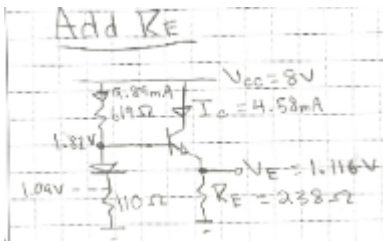 Add RE
Vcc = 8V
9.85mA
Ic = 4.58mA
619Ω
1.82V
VE = 1.116V
1.09V
110Ω
RE = 238Ω